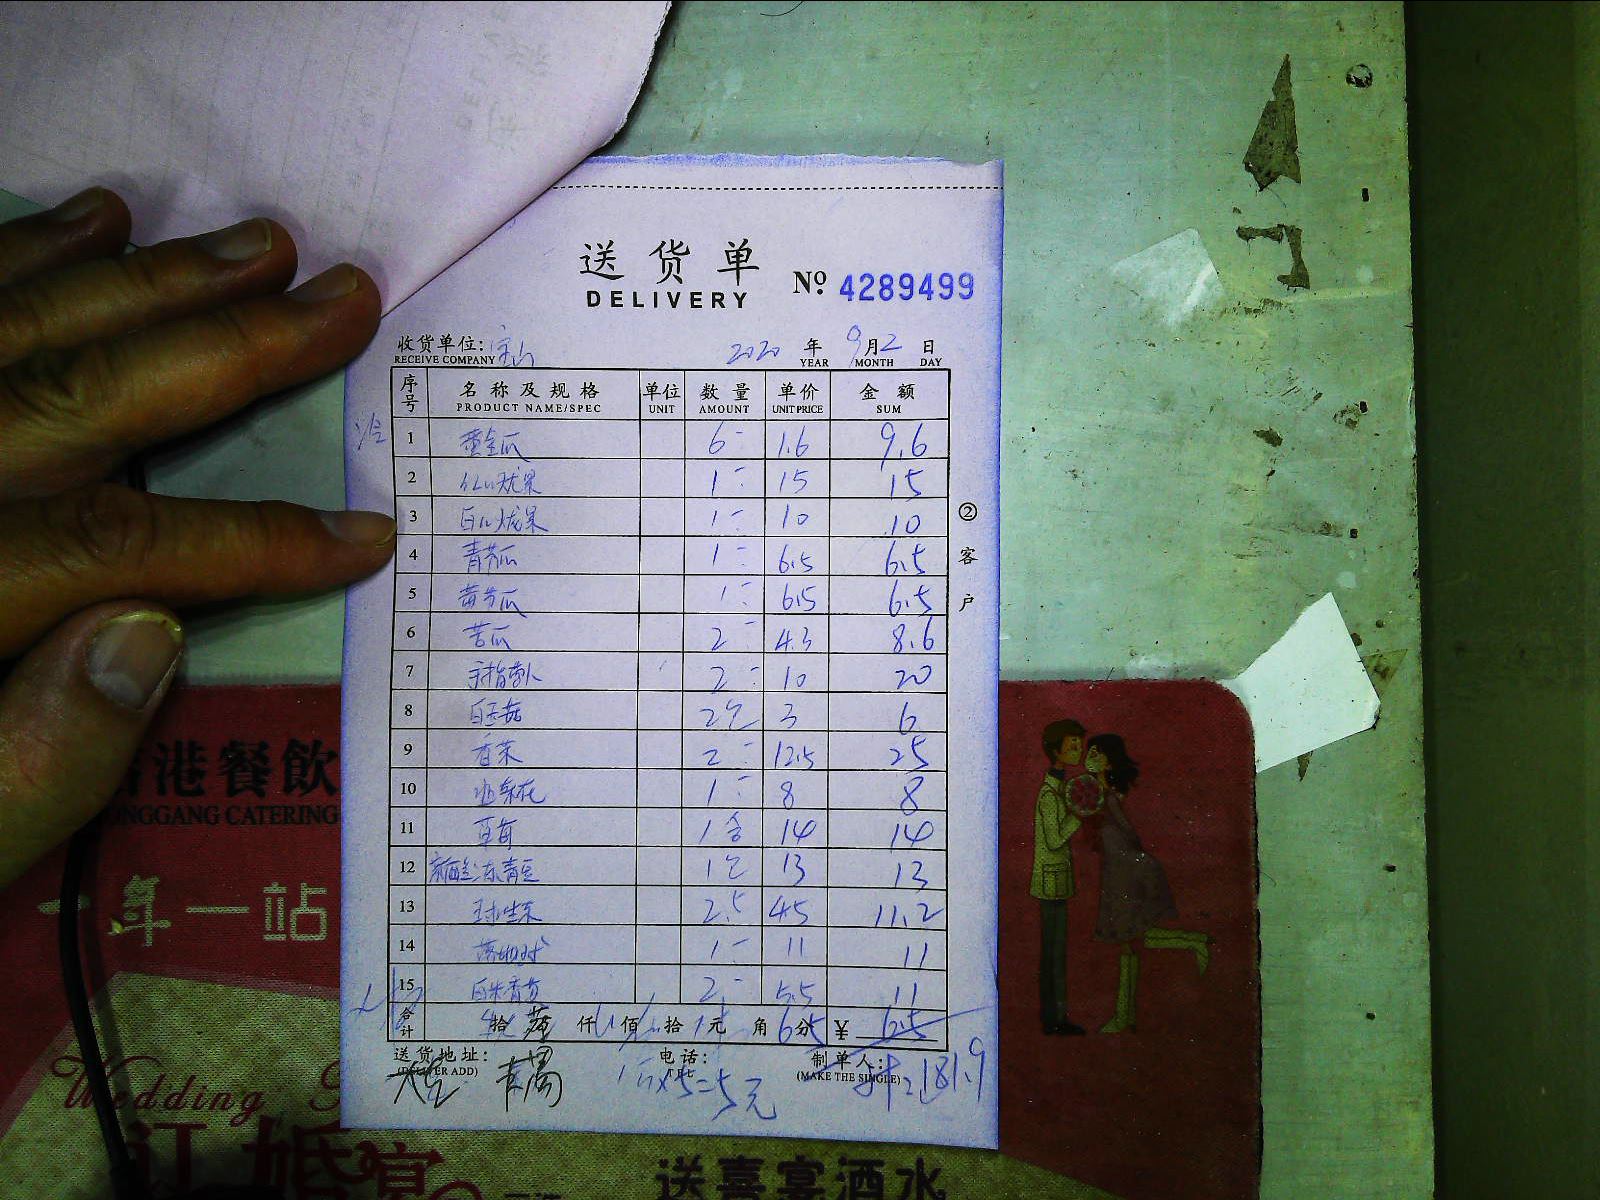 送货单
DELIVERY
№ 4289499
收货单位: 宝山 2020 年 9 月 2 日
RECEIVE COMPANY YEAR MONTH DAY
序号 名称及规格 单位 数量 单价 金额
PRODUCT NAME/SPEC UNIT AMOUNT UNIT PRICE SUM
1 黄金瓜 6- 1.6 9.6
2 红心火龙果 1- 15 15
3 白心火龙果 1- 10 10
4 青节瓜 1- 6.5 6.5
5 黄节瓜 1- 6.5 6.5
6 苦瓜 2- 4.3 8.6
7 手指萝卜 2- 10 20
8 白玉菇 2包 3 6
9 香菜 2- 12.5 25
10 1- 8 8
11 草莓 1盒 14 14
12 速冻青豆 1包 13 13
13 球生菜 2.5 4.5 11.2
14 1- 11 11
15 2- 5.5 11
合计 拾 仟 佰 拾 元 角 分 ¥ 6.5
②客户
送货地址: 电话: 制单人:
(DELIVER ADD) TEL (MAKE THE SINGLE)
5=5元 181.9
港餐飲
ONGGANG CATERING
一站
Wedding
订婚宴
送喜宴酒水